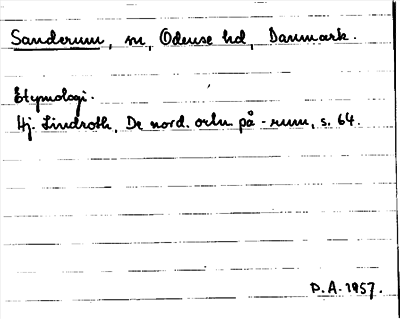 Sanderum, sn, Odense hd, Danmark.
Etymologi.
Hj. Lindroth, De nord. ortn. på -rum, s. 64.
P.A. 1957.